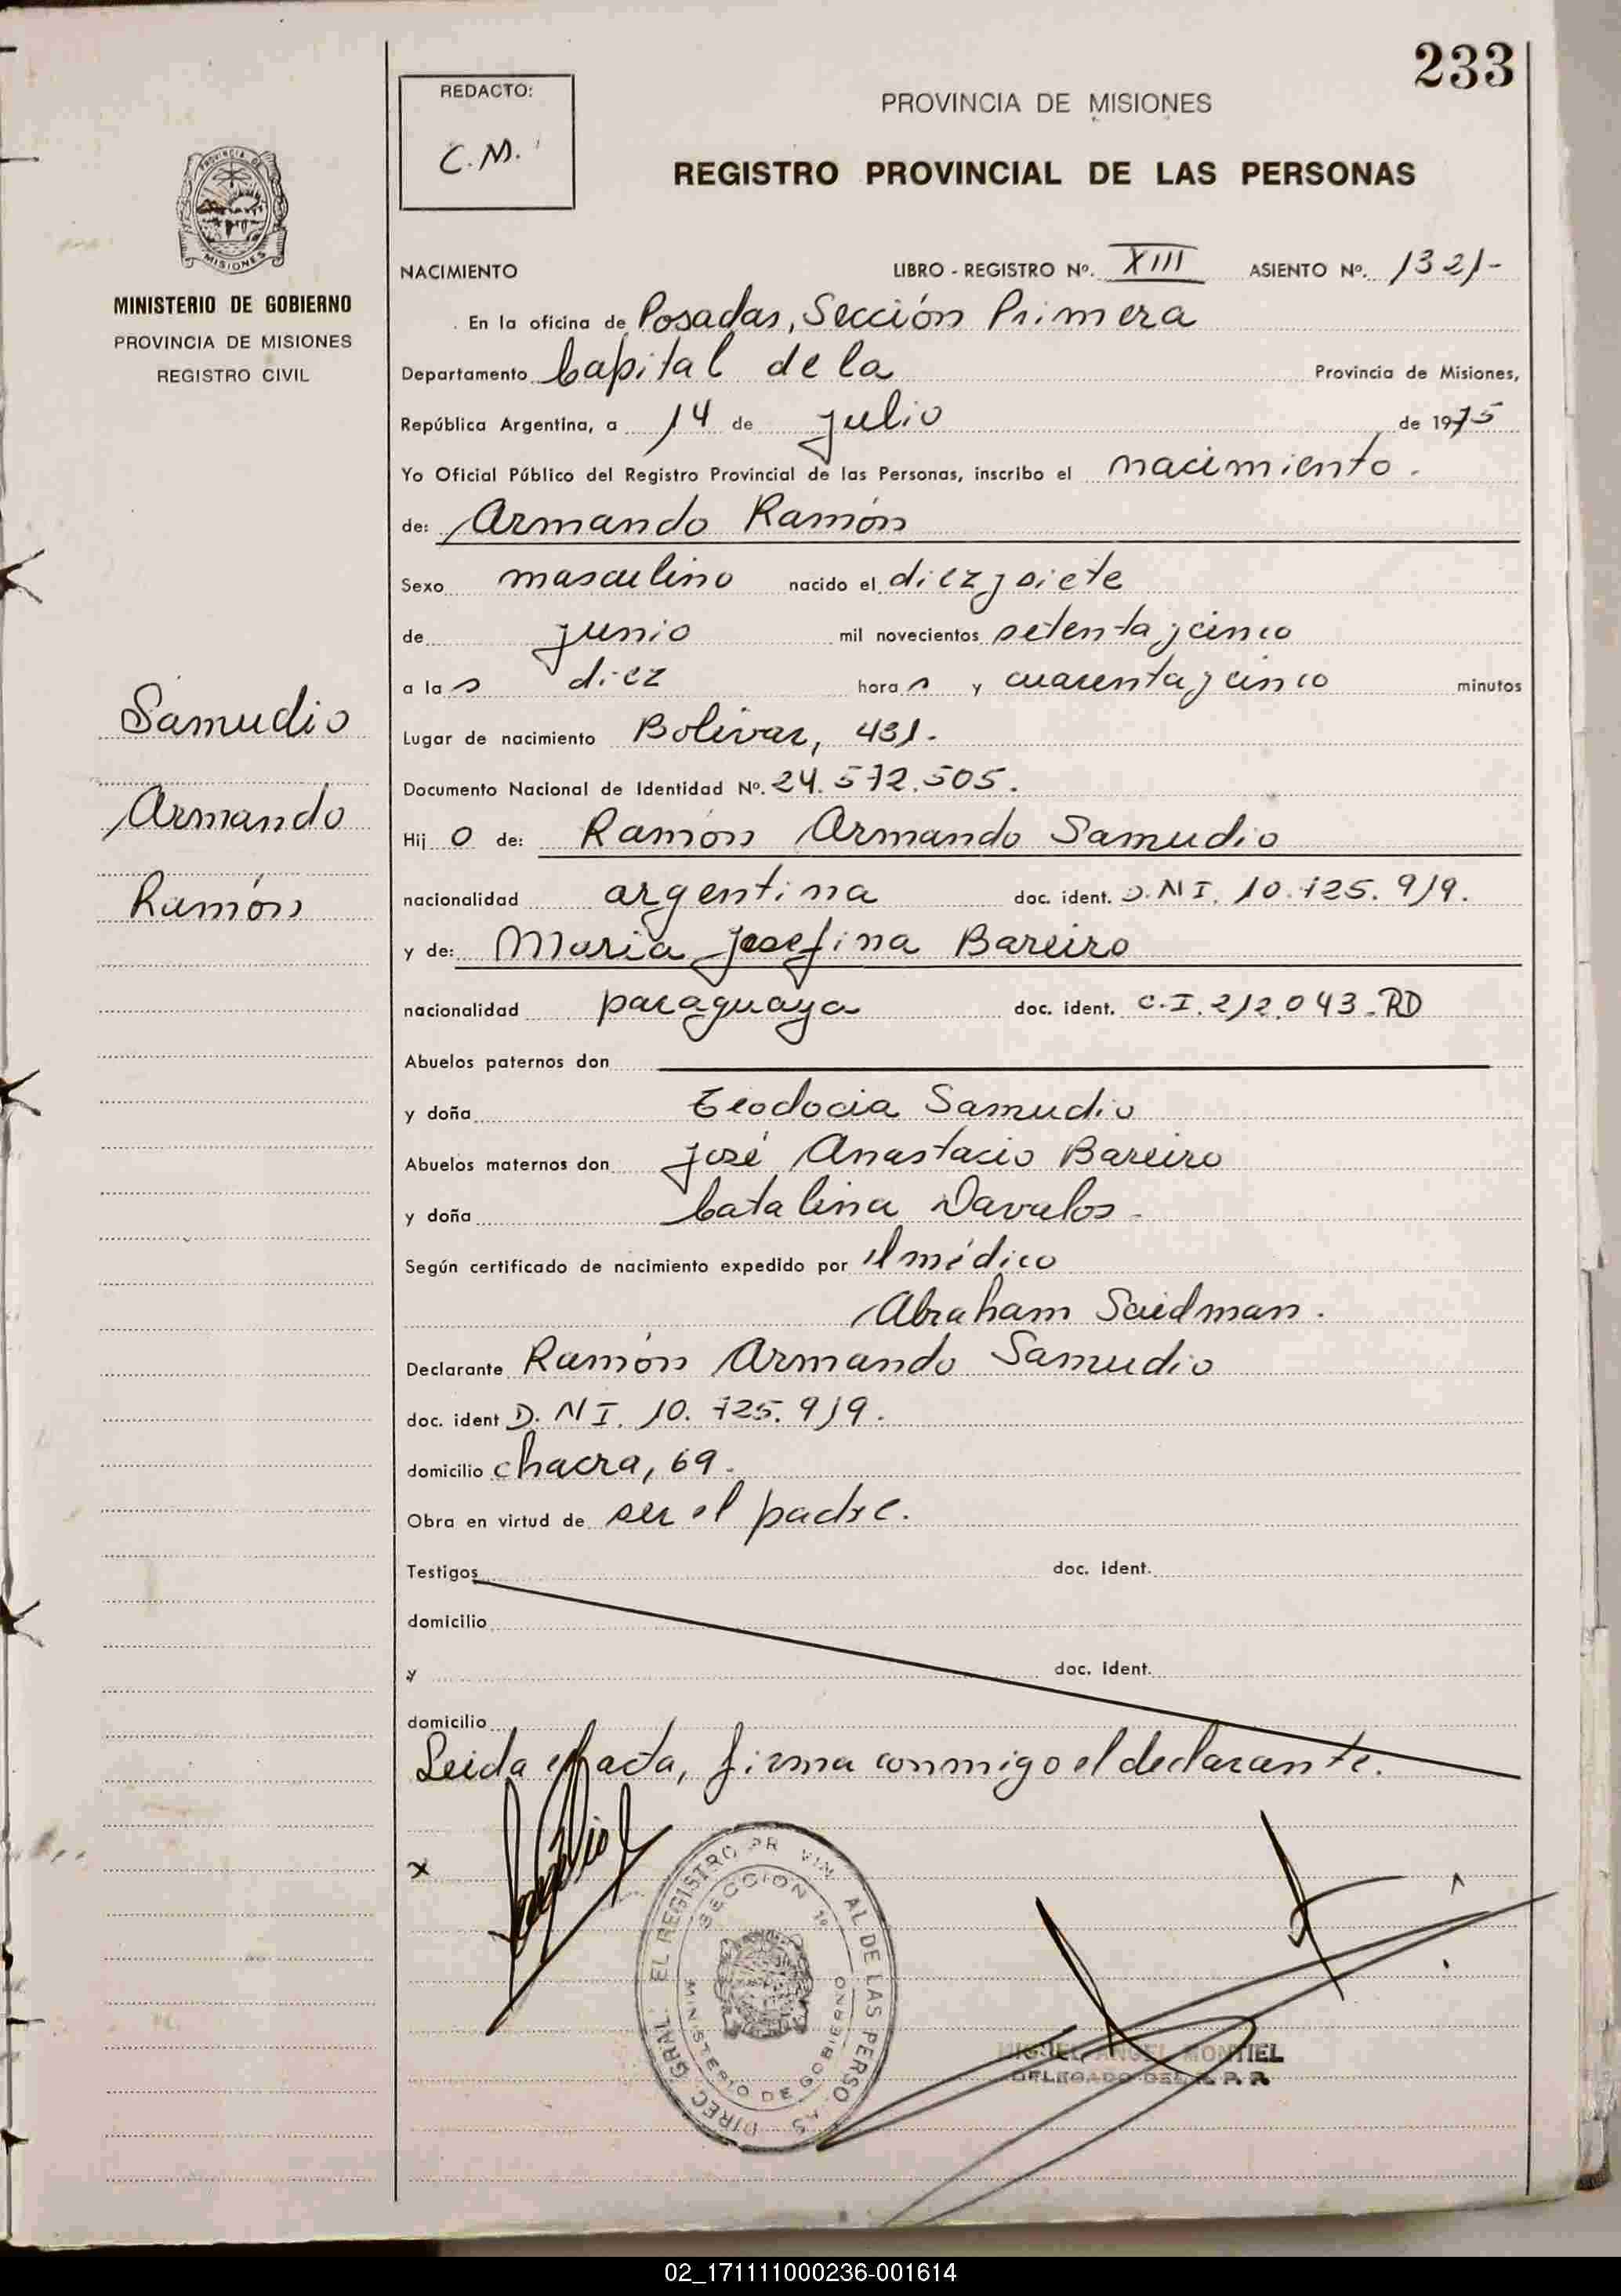 233
REDACTO:
C.M.
PROVINCIA DE MISIONES
REGISTRO PROVINCIAL DE LAS PERSONAS
PROVINCIA DE
MISIONES
MINISTERIO DE GOBIERNO
PROVINCIA DE MISIONES
REGISTRO CIVIL
Samudio
Armando
Ramón
NACIMIENTO LIBRO - REGISTRO Nº. XIII ASIENTO Nº. 1321-
En la oficina de Posadas, Sección Primera
Departamento Capital de la Provincia de Misiones,
República Argentina, a 14 de julio de 1975
Yo Oficial Público del Registro Provincial de las Personas, inscribo el nacimiento.
de: Armando Ramón
Sexo masculino nacido el diez y siete
de junio mil novecientos setenta y cinco
a las diez horas y cuarenta y cinco minutos
Lugar de nacimiento Bolivar, 431.
Documento Nacional de Identidad Nº. 24.572.505.
Hij o de: Ramón Armando Samudio
nacionalidad argentina doc. ident. D.N I. 10.725.919.
y de: Maria Josefina Bareiro
nacionalidad paraguaya doc. ident. C.I. 212.043-RD
Abuelos paternos don
y doña Teodocia Samudio
Abuelos maternos don José Anastacio Bareiro
y doña Catalina Davalos-
Según certificado de nacimiento expedido por el médico
Abraham Saidman.
Declarante Ramón Armando Samudio
doc. ident D. N I. 10. 725. 919.
domicilio chacra, 69.
Obra en virtud de ser el padre.
Testigos doc. ident.
domicilio
y doc. ident.
domicilio
Leida el acta, firma conmigo el declarante.
x
DIREC GRAL. EL REGISTRO PR VIN AL DE LAS PERSO AS
SECCION 1º
MINISTERIO DE GOBIERNO
MIGUEL ANGEL MONTIEL
DELEGADO DEL R. P. P.
02_171111000236-001614